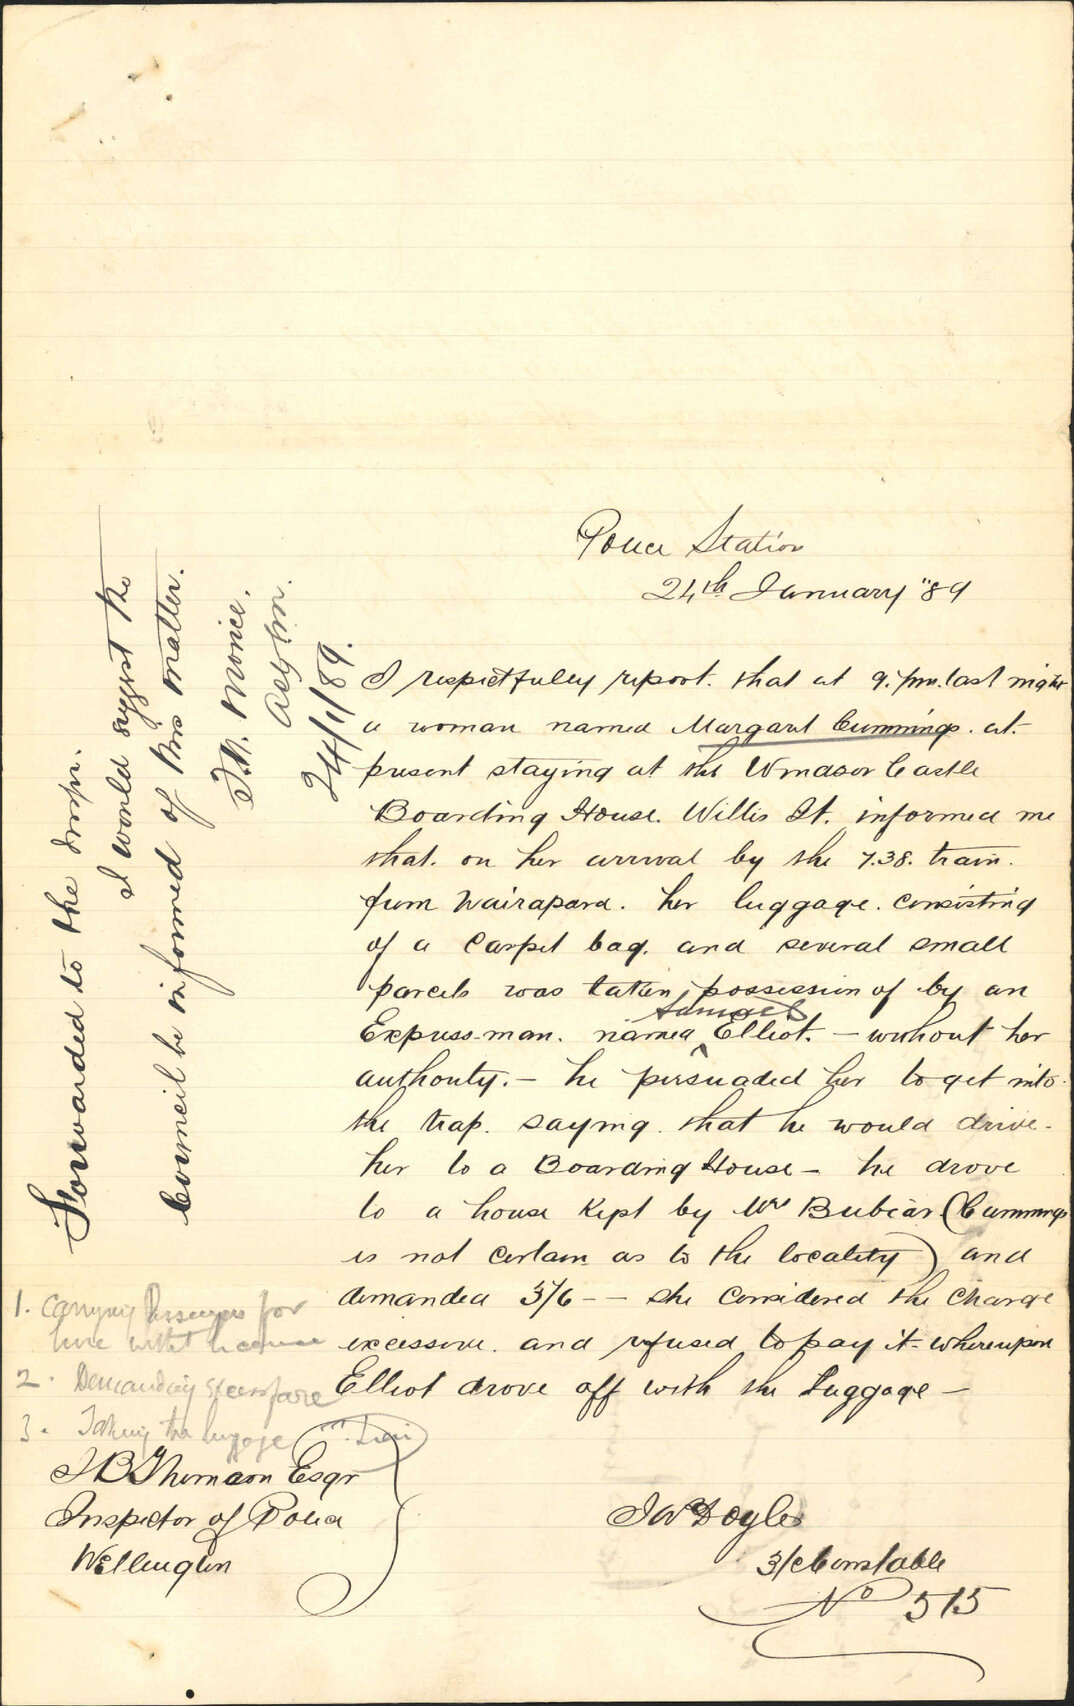 Police Station
24th January "89
I respectfully report. that at 9. pm. last night
a woman named Margaret Cummings. at.
present staying at the Windsor Castle
Boarding House. Willis St. informed me
that. on her arrival by the 7.38. train.
from Wairapara. her luggage. consisting
of a Carpet bag. and several small
parcels was taken possession of by an
Express-man. named Samuel Elliot. – without her
authority. – he persuaded her to get into
the trap. saying. that he would drive-
her to a Boarding House – he drove
to a house kept by Mrs Bubear. (Cummings
is not certain as to the locality) and
demanded 3/6 – – she considered the Charge
excessive. and refused to pay it – whereupon
Elliot drove off with the Luggage –
J W Doyle
3/c Constable
No 515
J B Thomson Esqr
Inspector of Police
Wellington
Forwarded to the Inspr.
I would suggest the
Council be informed of this matter.
24/1/89.
1. Carrying Passengers for
hire without license
2. Demanding
3. Taking the luggage